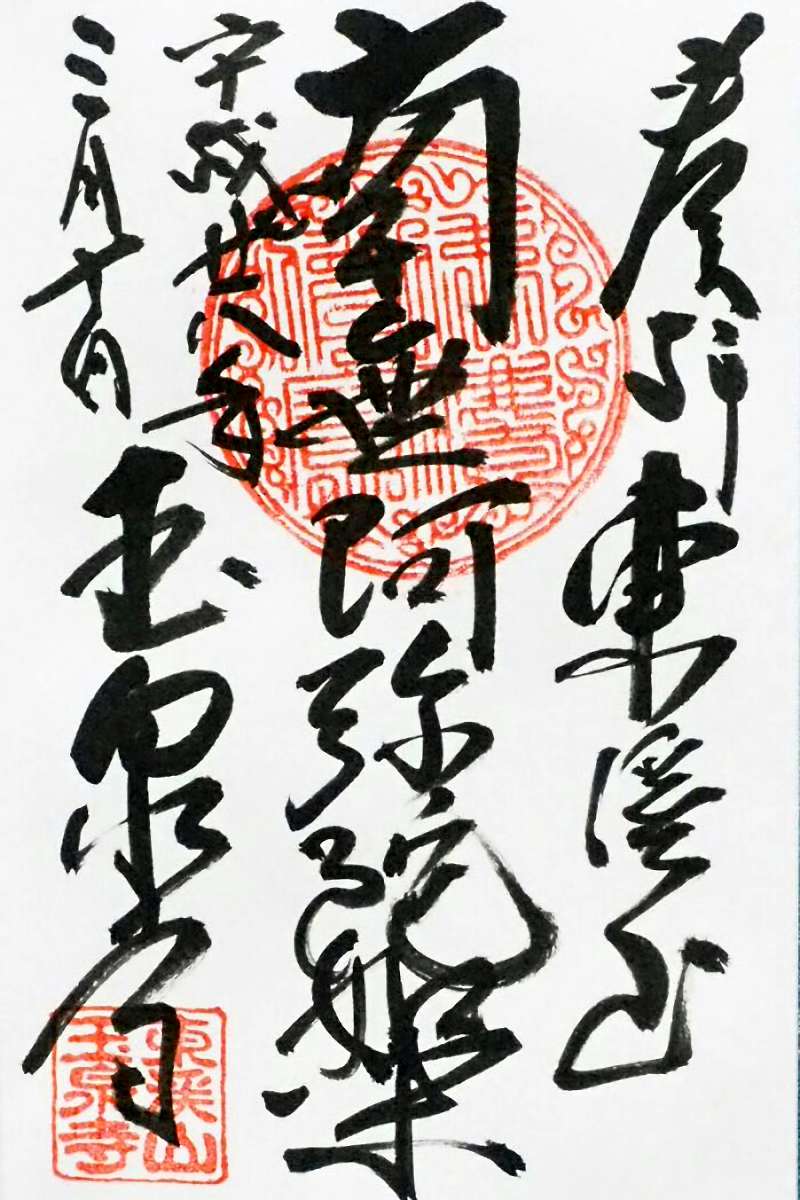 奉拝 東溪山
南無阿弥陀如来
平成廿八年
三月十日
玉泉寺
東溪山
玉泉寺